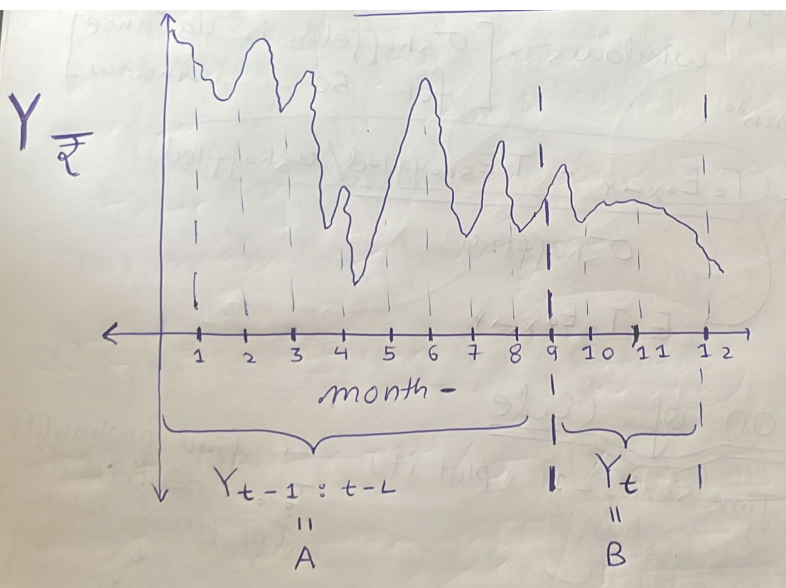 Y ₹
1 2 3 4 5 6 7 8 9 10 11 12
month -
Y t-1 : t-L
Y t
=
=
A
B